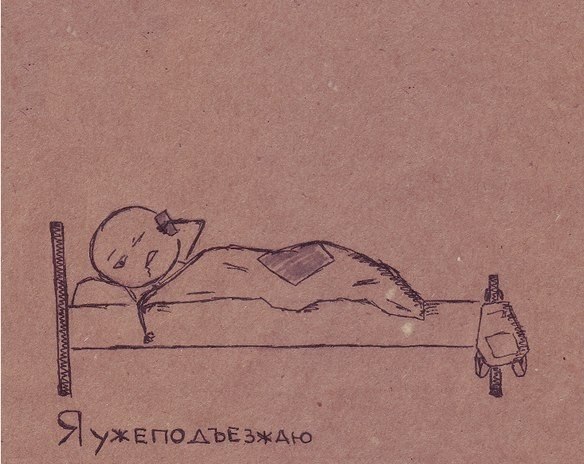 Я уже подъезжаю